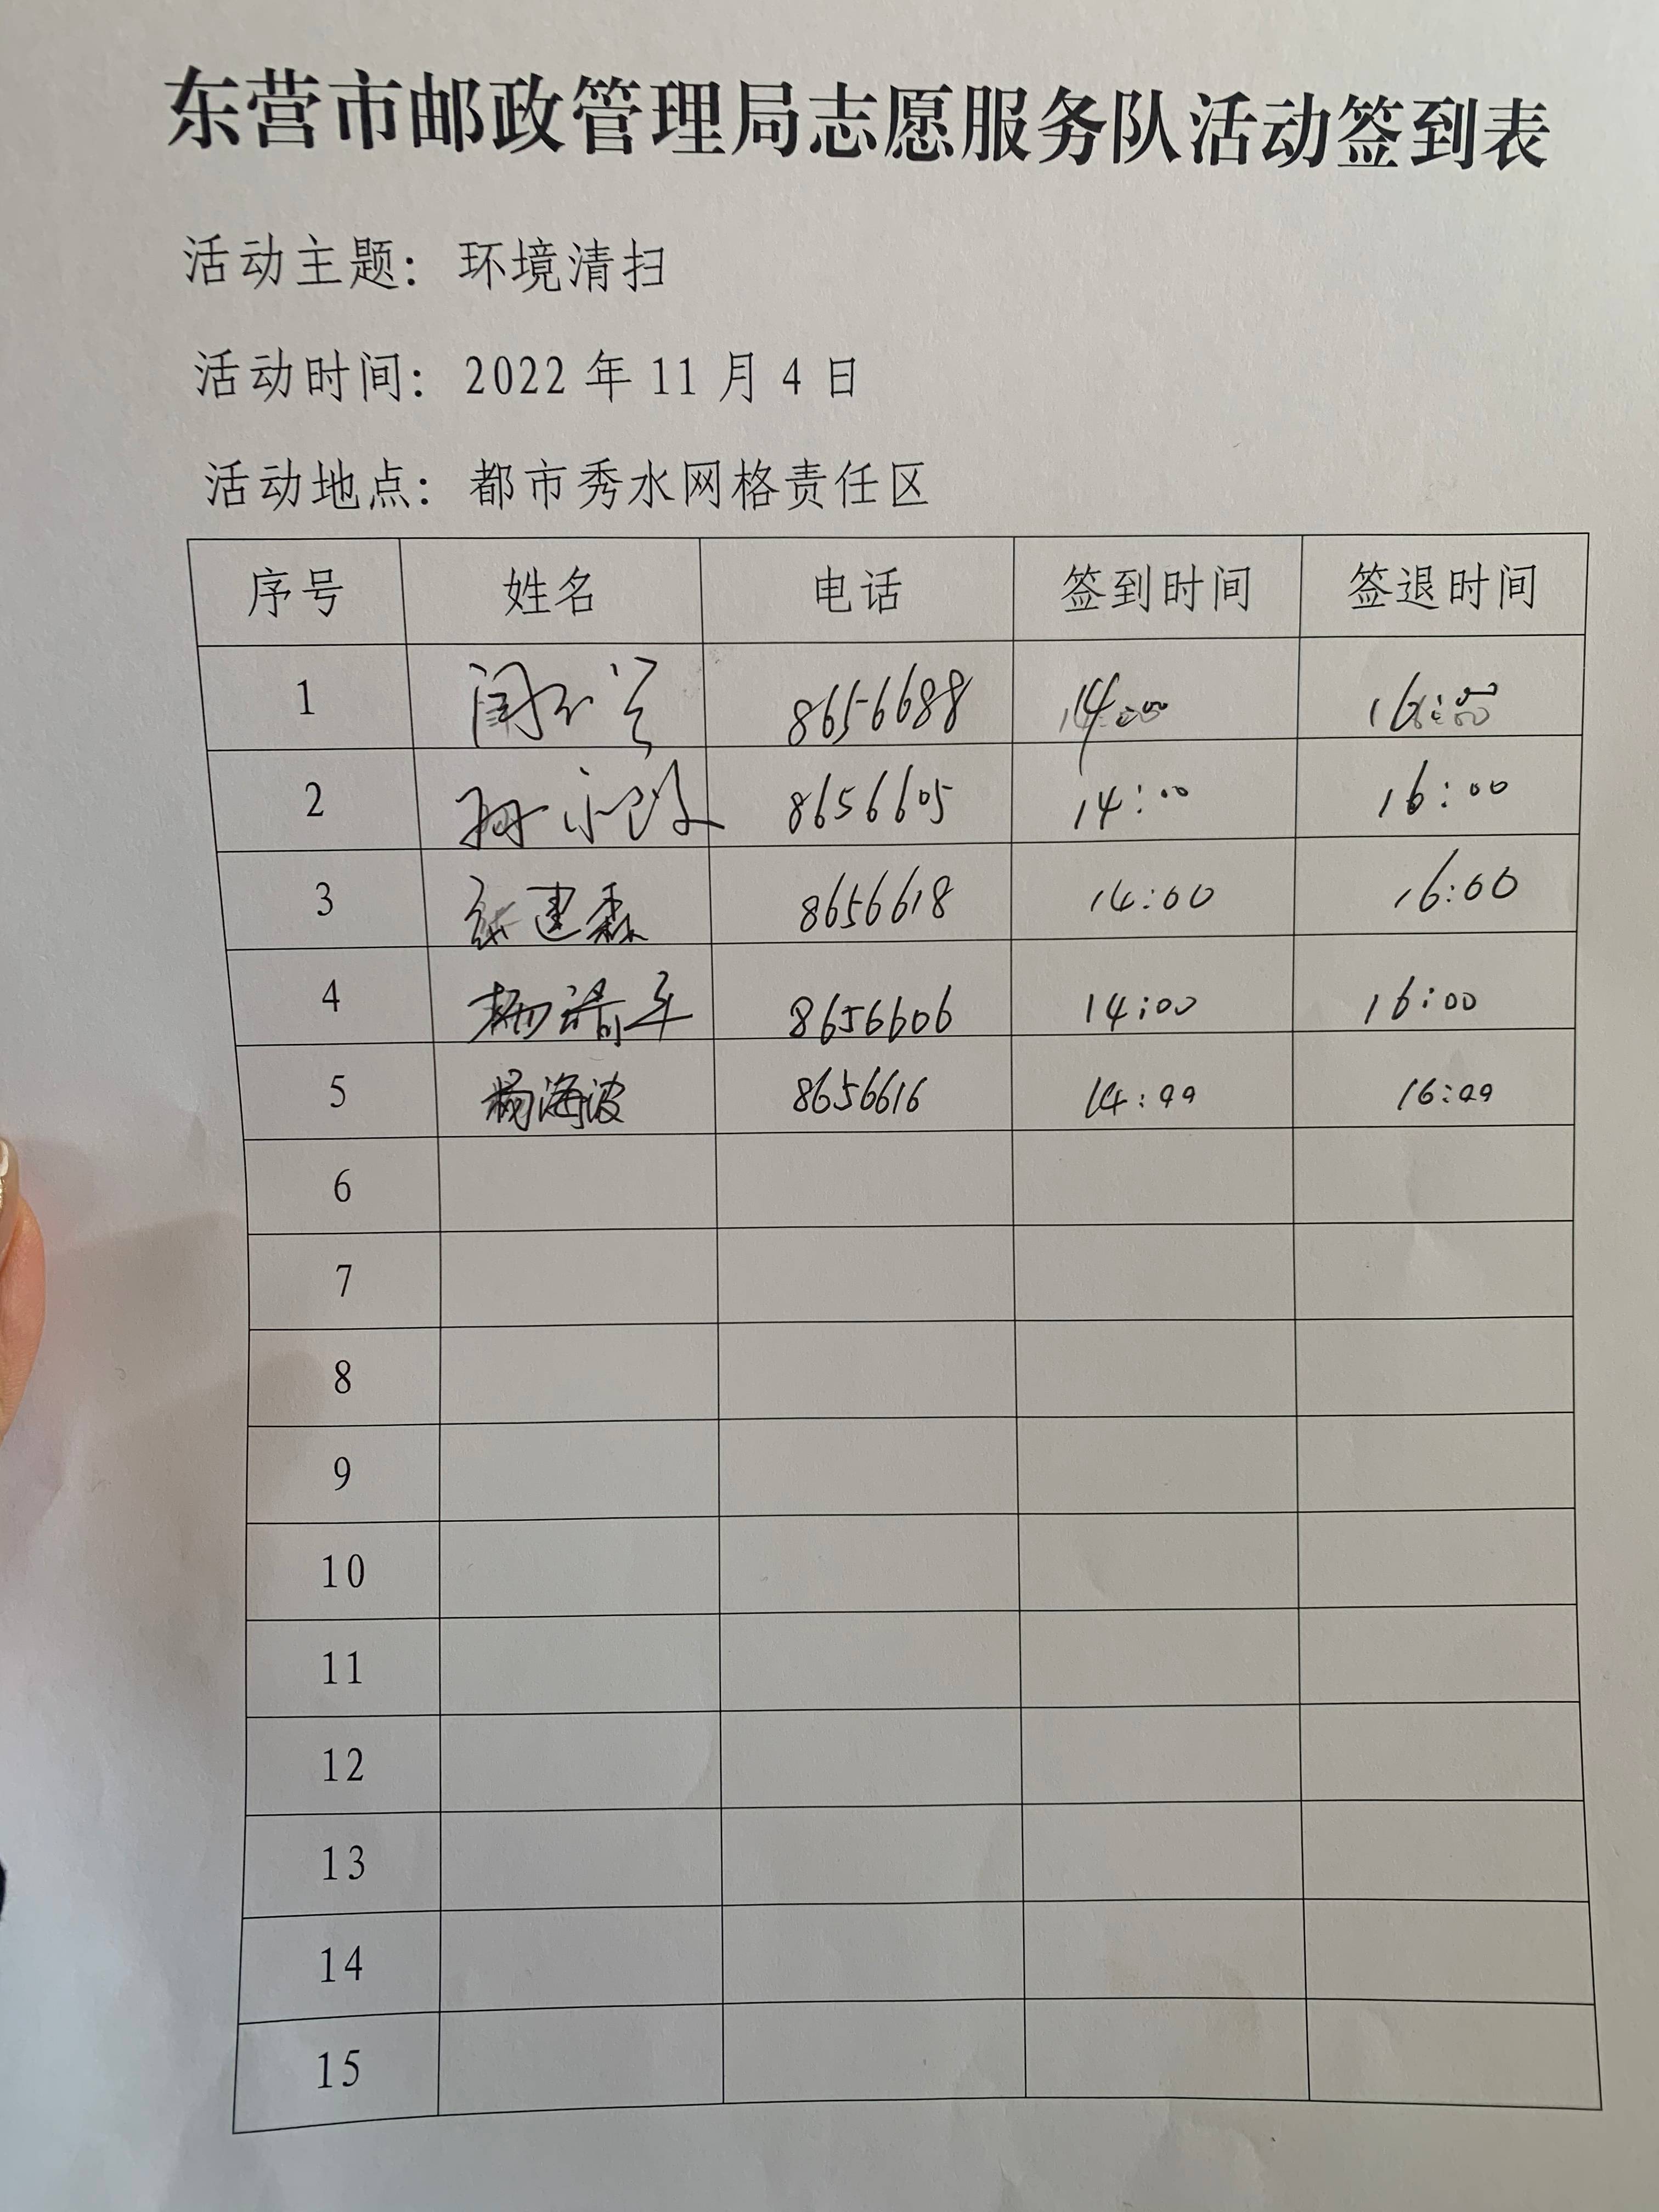 东营市邮政管理局志愿服务队活动签到表
活动主题：环境清扫
活动时间：2022年11月4日
活动地点：都市秀水网格责任区
序号 姓名 电话 签到时间 签退时间
1 8656688 14:00 16:00
2 孙 8656605 14:00 16:00
3 张建森 8656618 14:00 16:00
4 杨 8656606 14:00 16:00
5 杨海波 8656616 14:00 16:00
6
7
8
9
10
11
12
13
14
15